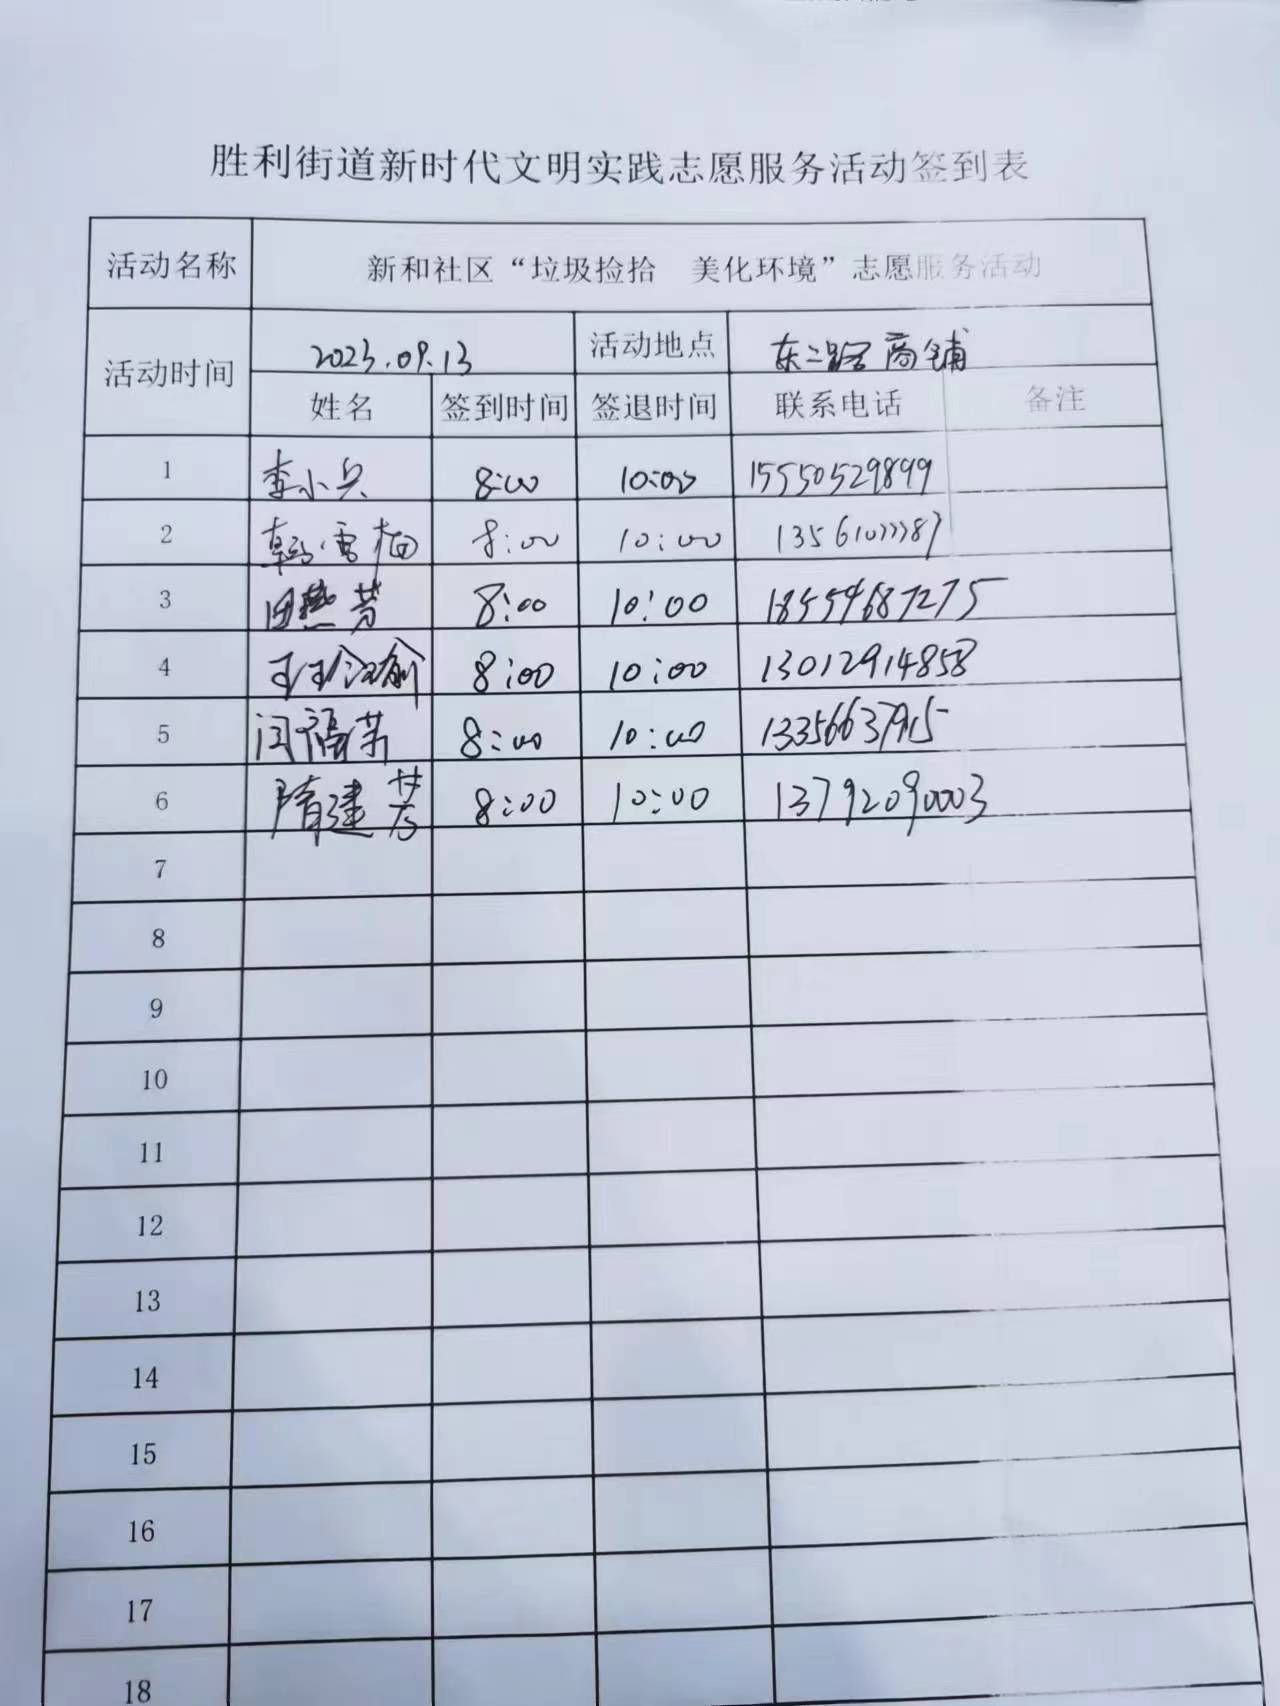 胜利街道新时代文明实践志愿服务活动签到表
活动名称 新和社区“垃圾捡拾 美化环境”志愿服务活动
活动时间 2023.09.13 活动地点 东二路商铺
姓名 签到时间 签退时间 联系电话 备注
1 李小兵 8:00 10:00 15550529899
2 韩雪梅 8:00 10:00
3 田燕芳 8:00 10:00 18554687275
4 8:00 10:00 13012914858
5 闫福芳 8:00 10:00 13356637915
6 隋建芳 8:00 10:00 13792090003
7
8
9
10
11
12
13
14
15
16
17
18